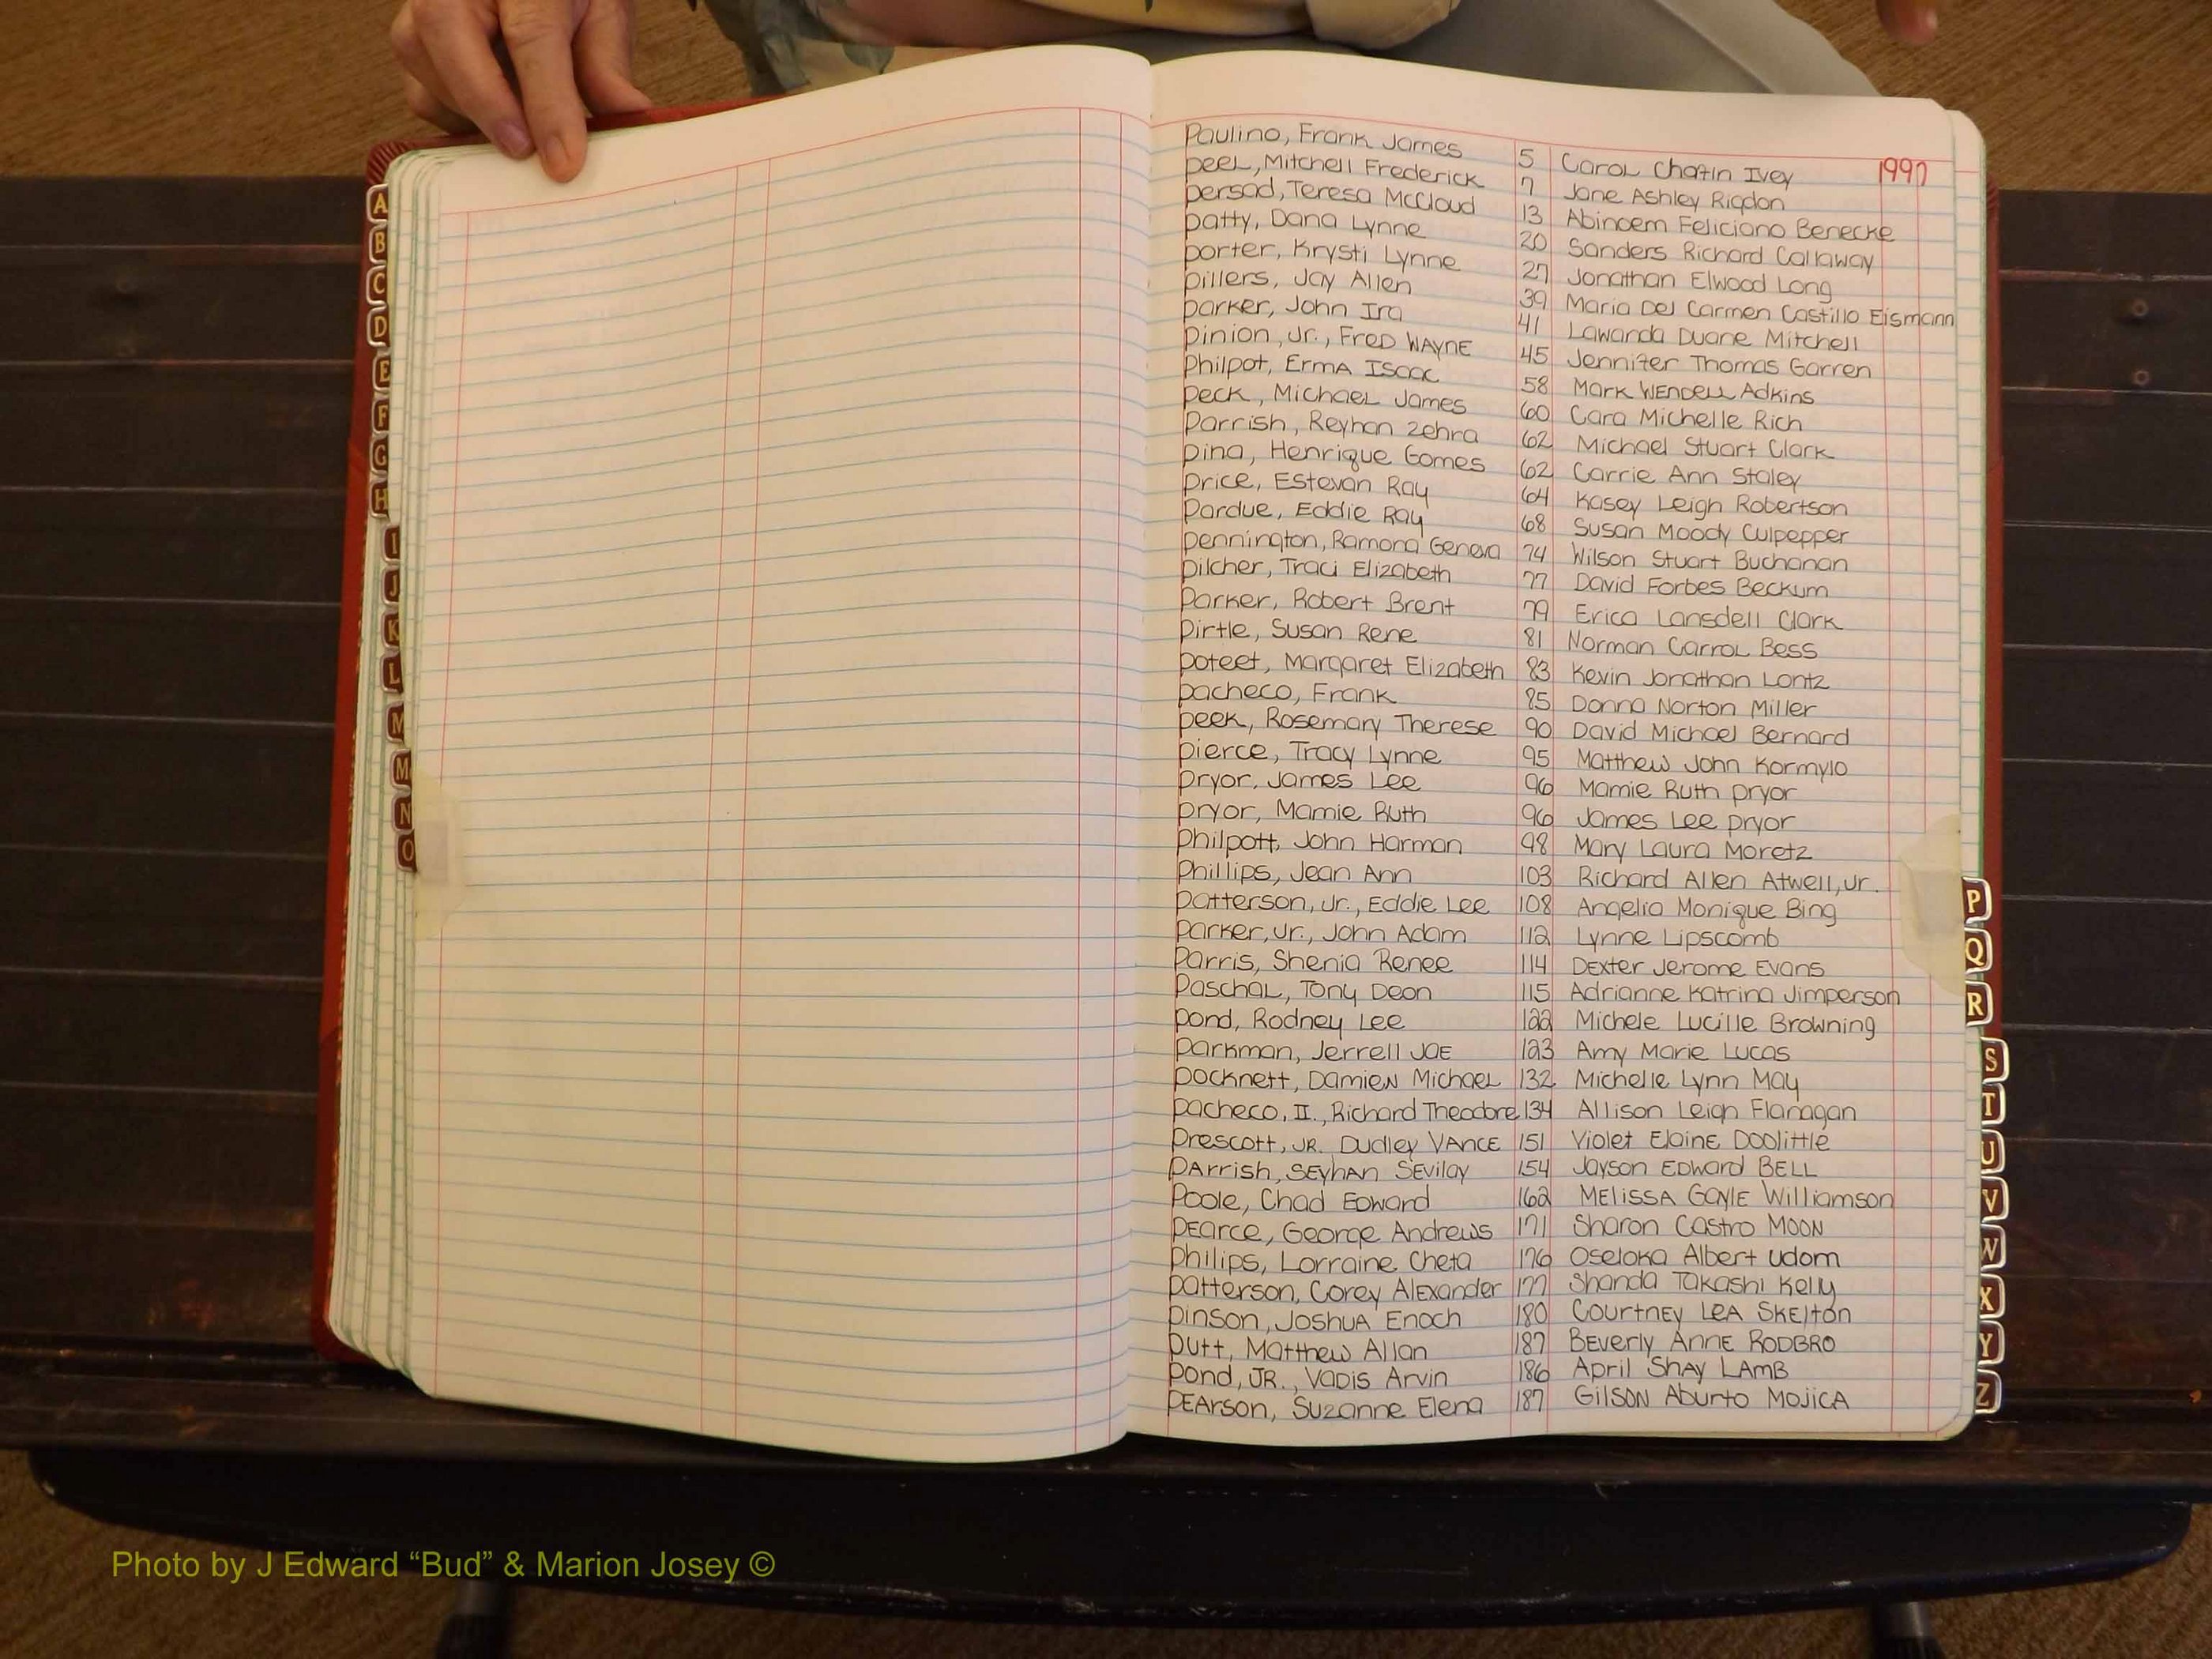 1997
Paulino, Frank James 5 Carol Chafin Ivey
Peel, Mitchell Frederick 7 Jane Ashley Rigdon
Persad, Teresa McCloud 13 Abinoem Feliciano Benecke
Patty, Dana Lynne 20 Sanders Richard Callaway
Porter, Krysti Lynne 27 Jonathan Elwood Long
Pillers, Jay Allen 39 Maria Del Carmen Castillo Eismann
Parker, John Ira 41 Lawanda Duane Mitchell
Pinion, Jr., Fred Wayne 45 Jennifer Thomas Garren
Philpot, Erma Isaac 58 Mark Wendell Adkins
Peck, Michael James 60 Cara Michelle Rich
Parrish, Reyhan Zehra 62 Michael Stuart Clark
Pina, Henrique Gomes 62 Carrie Ann Staley
Price, Estevan Ray 64 Kasey Leigh Robertson
Pardue, Eddie Ray 68 Susan Moody Culpepper
Pennington, Ramona Geneva 74 Wilson Stuart Buchanan
Pilcher, Traci Elizabeth 77 David Forbes Beckum
Parker, Robert Brent 79 Erica Lansdell Clark
Pirtle, Susan Rene 81 Norman Carrol Bess
Poteet, Margaret Elizabeth 83 Kevin Jonathan Lontz
Pacheco, Frank 85 Donna Norton Miller
Peek, Rosemary Therese 90 David Michael Bernard
Pierce, Tracy Lynne 95 Matthew John Kormylo
Pryor, James Lee 96 Mamie Ruth Pryor
Pryor, Mamie Ruth 96 James Lee Pryor
Philpott, John Harman 98 Mary Laura Moretz
Phillips, Jean Ann 103 Richard Allen Atwell, Jr.
Patterson, Jr., Eddie Lee 108 Angelia Monique Bing
Parker, Jr., John Adam 112 Lynne Lipscomb
Parris, Shenia Renee 114 Dexter Jerome Evans
Paschal, Tony Deon 115 Adrianne Katrina Jimperson
Pond, Rodney Lee 122 Michele Lucille Browning
Parkman, Jerrell Joe 123 Amy Marie Lucas
Pocknett, Damien Michael 132 Michelle Lynn May
Pacheco, II., Richard Theodore 134 Allison Leigh Flanagan
Prescott, JR. Dudley Vance 151 Violet Elaine Doolittle
Parrish, Seyhan Sevilay 154 Jayson Edward Bell
Poole, Chad Edward 162 Melissa Gayle Williamson
Pearce, George Andrews 171 Sharon Castro Moon
Philips, Lorraine Cheta 176 Oseloka Albert Udom
Patterson, Corey Alexander 177 Shanda Takashi Kelly
Pinson, Joshua Enoch 180 Courtney Lea Skelton
Putt, Matthew Allan 187 Beverly Anne Rodbro
Pond, JR., Vadis Arvin 186 April Shay Lamb
Pearson, Suzanne Elena 187 Gilson Aburto Mojica
A
B
C
D
E
F
G
H
I
J
K
L
M
Mc
N
O
P
Q
R
S
T
U
V
W
X
Y
Z
Photo by J Edward “Bud” & Marion Josey ©